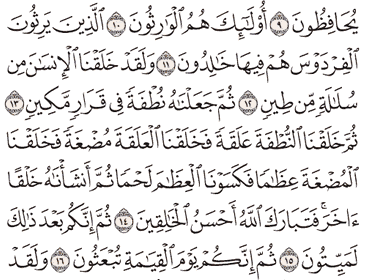 يُحَافِظُونَ ٩ أُوْلَٰٓئِكَ هُمُ ٱلْوَٰرِثُونَ ١٠ ٱلَّذِينَ يَرِثُونَ
ٱلْفِرْدَوْسَ هُمْ فِيهَا خَٰلِدُونَ ١١ وَلَقَدْ خَلَقْنَا ٱلْإِنسَٰنَ مِن
سُلَٰلَةٍ مِّن طِينٍ ١٢ ثُمَّ جَعَلْنَٰهُ نُطْفَةً فِى قَرَارٍ مَّكِينٍ ١٣
ثُمَّ خَلَقْنَا ٱلنُّطْفَةَ عَلَقَةً فَخَلَقْنَا ٱلْعَلَقَةَ مُضْغَةً فَخَلَقْنَا
ٱلْمُضْغَةَ عِظَٰمًا فَكَسَوْنَا ٱلْعِظَٰمَ لَحْمًا ثُمَّ أَنشَأْنَٰهُ خَلْقًا
ءَاخَرَ ۚ فَتَبَارَكَ ٱللَّهُ أَحْسَنُ ٱلْخَٰلِقِينَ ١٤ ثُمَّ إِنَّكُم بَعْدَ ذَٰلِكَ
لَمَيِّتُونَ ١٥ ثُمَّ إِنَّكُمْ يَوْمَ ٱلْقِيَٰمَةِ تُبْعَثُونَ ١٦ وَلَقَدْ